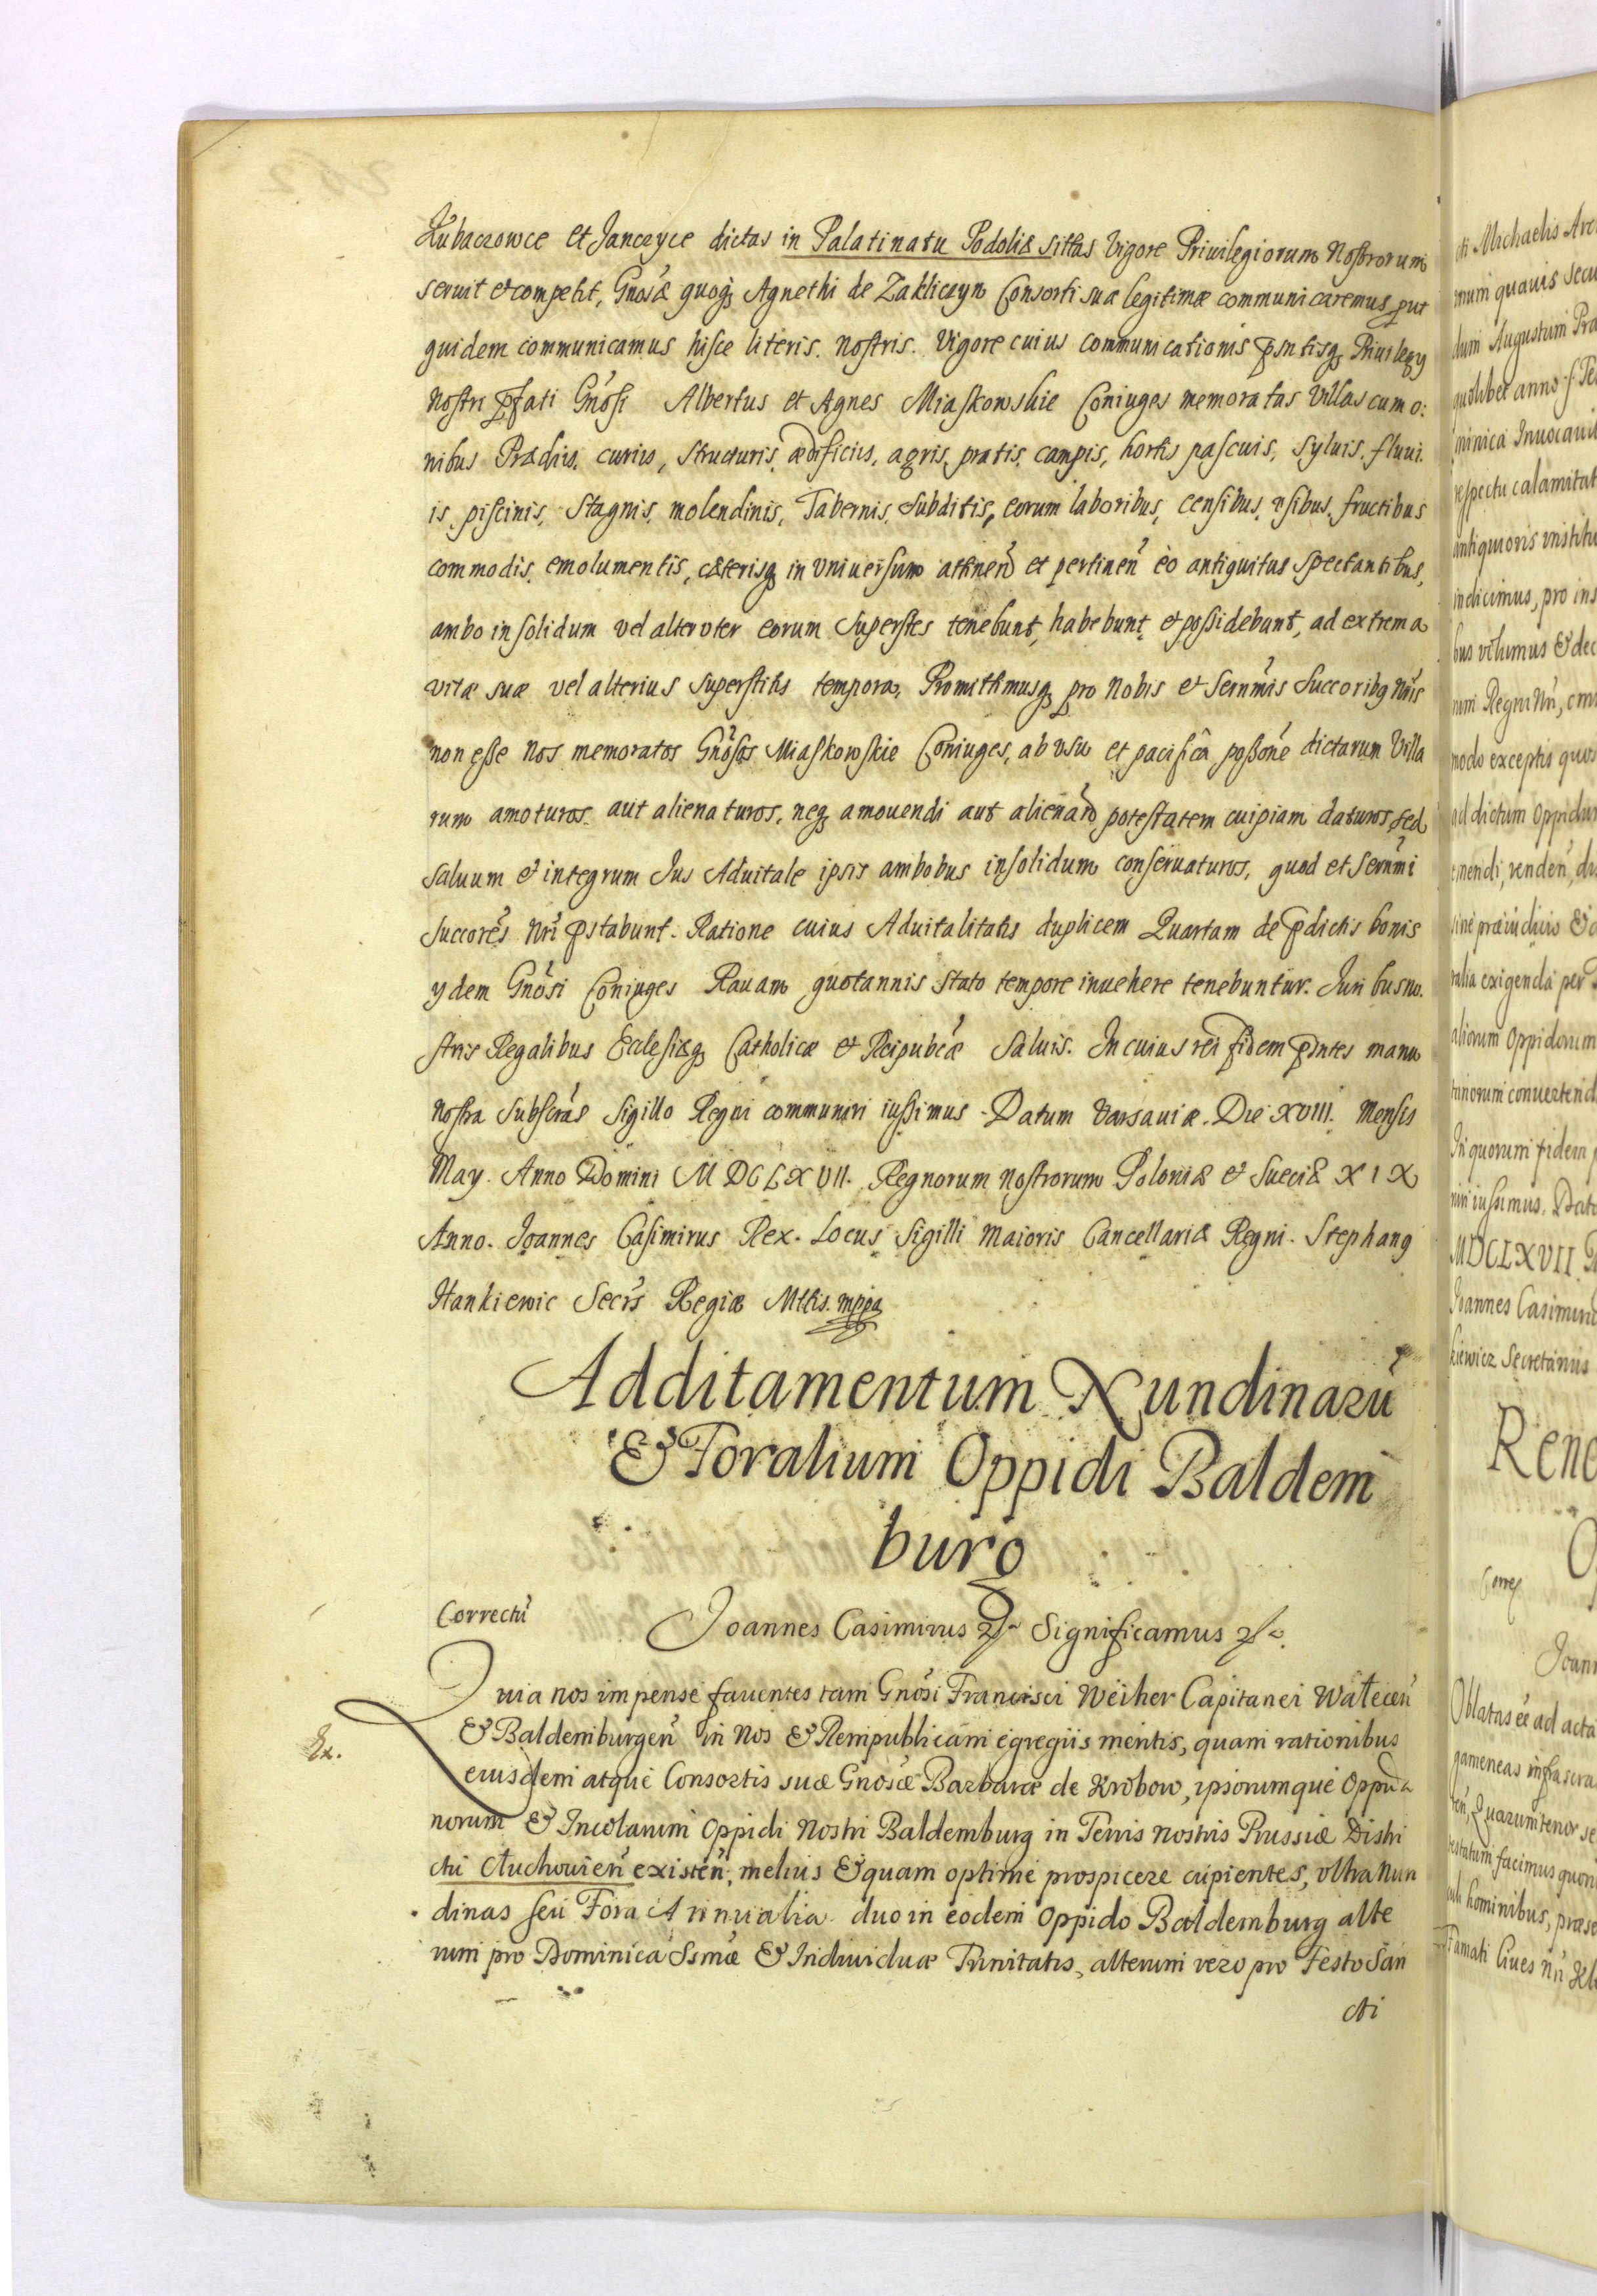 Kubaczowce et Janczyce dictas in Palatinatu Podoliæ sittas Vigore Priuilegiorum Nostrorum
seruit et competit, Gnosæ quoq Agnethi de Zakliczyn Consorti suæ legitimæ communicaremus, put
quidem communicamus hisce literis nostris. Vigore cuius communicationis pntisq Priuilegy
Nostri pfati Gnosi Albertus et Agnes Miaskowskie Coniuges memoratas Villas cum o:
nibus Prædiis, curiis, structuris, ædificiis, agris, pratis, campis, hortis pascuis, syluis, fluui.
is, piscinis, stagnis, molendinis, Tabernis, subditis, eorum laboribus, censibus, vsibus, fructibus
commodis, emolumentis, cæterisq in vniuersum attinen et pertinen eo antiquitus spectantibus,
ambo in solidum vel alteruter eorum superstes tenebunt, habebunt et possidebunt, ad extrema
vitæ suæ vel alterius superstitis tempora, Promittimusq pro Nobis et Sernmis Succoribq Nris
non esse Nos memoratos Gnosos Miaskowskie Coniuges, ab vsu et pacifica possone dictarum Villa
rum amoturos aut alienaturos, neq amouendi aut alienand potestatem cuipiam daturos, sed
saluum et integrum Jus Aduitale ipsis ambobus in solidum conseruaturos, quod et Sernmi
Succores Nri pstabunt. Ratione cuius Aduitalitatis duplicem Quartam de pdictis bonis
ydem Gnosi Coniuges Rauam quotannis stato tempore inuehere tenebuntur. Juribus no.
stris Regalibus Ecclesiæq Catholicæ et Reipubcæ saluis. In cuius rei fidem pntes manu
nostra subscras Sigillo Regni communiri iussimus. Datum Varsauiæ. Die XVIII. Mensis
May. Anno Domini MDCLXVII. Regnorum Nostrorum Poloniæ et Sueciæ XIX
Anno. Joannes Casimirus Rex. Locus Sigilli Maioris Cancellariæ Regni. Stephang
Hankiewic Secrs Regiæ Mttis. mppa
Additamentum Nundinarū
& Foralium Oppidi Baldem
burg
Correctū
Joannes Casimirus Significamus
Quia nos impense fauentes tam Gnosi Francisci Weiher Capitanei Watecen
& Baldemburgen in Nos & Rempublicam egregiis meritis, quam rationibus
eiusdem atque Consortis suæ Gnosæ Barbaræ de Krobow, ipsorumque Oppida
norum & Incolarum Oppidi Nostri Baldemburg in Terris nostris Prussiæ Distri
ctu Cłuchouien existen, melius & quam optime prospicere cupientes, vltra Nun
dinas seu Fora Annualia duo in eodem Oppido Baldemburg alte
rum pro Dominica Ssmæ & Indiuiduæ Trinitatis, alterum vero pro Festo San
cti
cti Michaelis Arc
dum Augustum Pra
quolibet anno f Fe
minica Inuocauit
respectu calamitat
antiquioris institu
indicimus, pro ins
bus volumus & dec
modo exceptis quos
ad dictum Oppidum
sine præiudicio
ralia exigenda per
aliorum Oppidorum
In quorum fidem
MDCLXVII
Joannes Casimirus
kiewicz Secretarius
Reno
Joann
Oblatas ee ad acta
Quarum tenor se
testatum facimus quon
hominibus, præse
Famati Ciues Nri